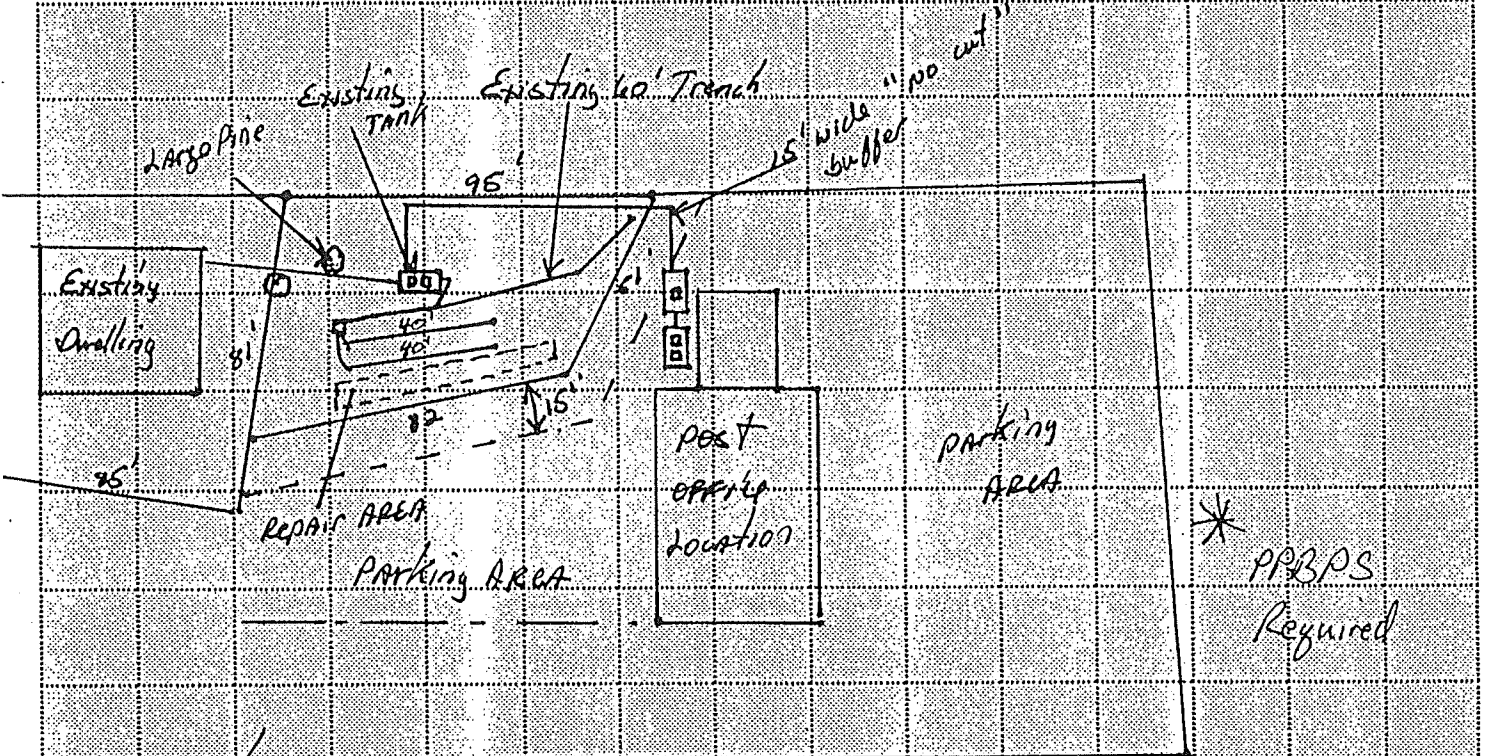 Large Pine
Existing
TANK
Existing 60' Trench
15' wide "no cut"
buffer
95'
Existing
Dwelling
81'
40'
40'
61'
82
15'
85'
REPAIR AREA
PARKing AREA
Post
OFFice
Location
PARKing
AREA
* PPBPS
Required